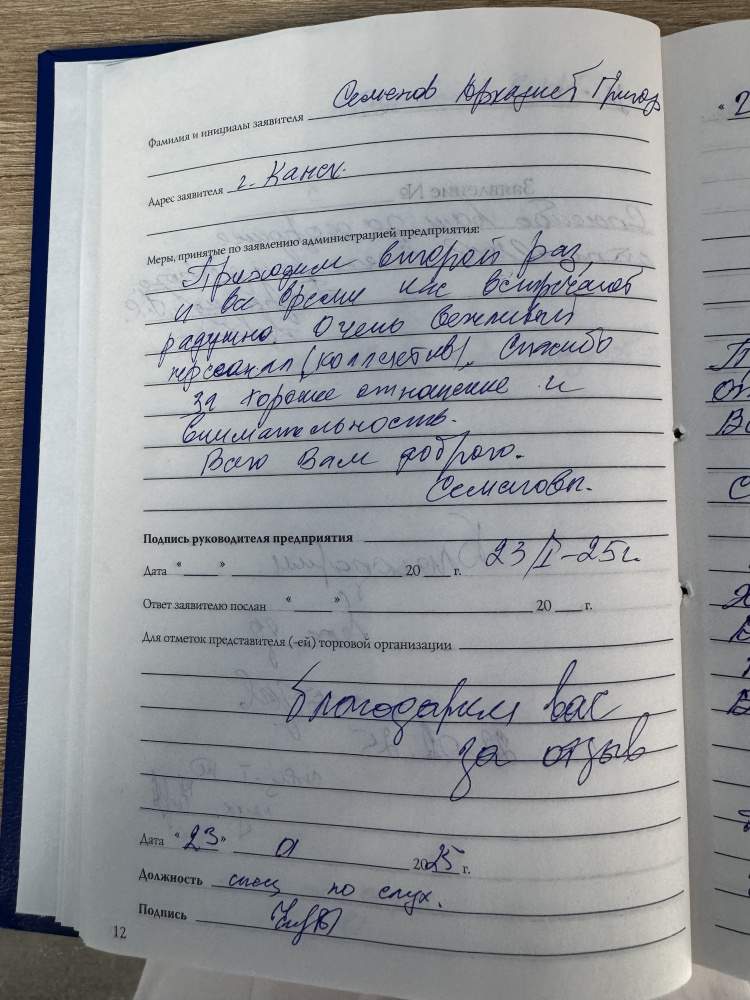 Фамилия и инициалы заявителя Семенов
Адрес заявителя г. Канск.
Меры, принятые по заявлению администрацией предприятия:
Приходим второй раз,
и все время нас встречают
радушно. Очень вежливый
персонал (коллектив). Спасибо
за хорошее отношение и
внимательность.
Всего Вам доброго.
Подпись руководителя предприятия
Дата "___" 20___ г. 23/I-25г.
Ответ заявителю послан "___" 20___ г.
Для отметок представителя (-ей) торговой организации
Благодарим вас
за отзыв
Дата "23" 01 2025 г.
Должность спец по слух.
Подпись
12